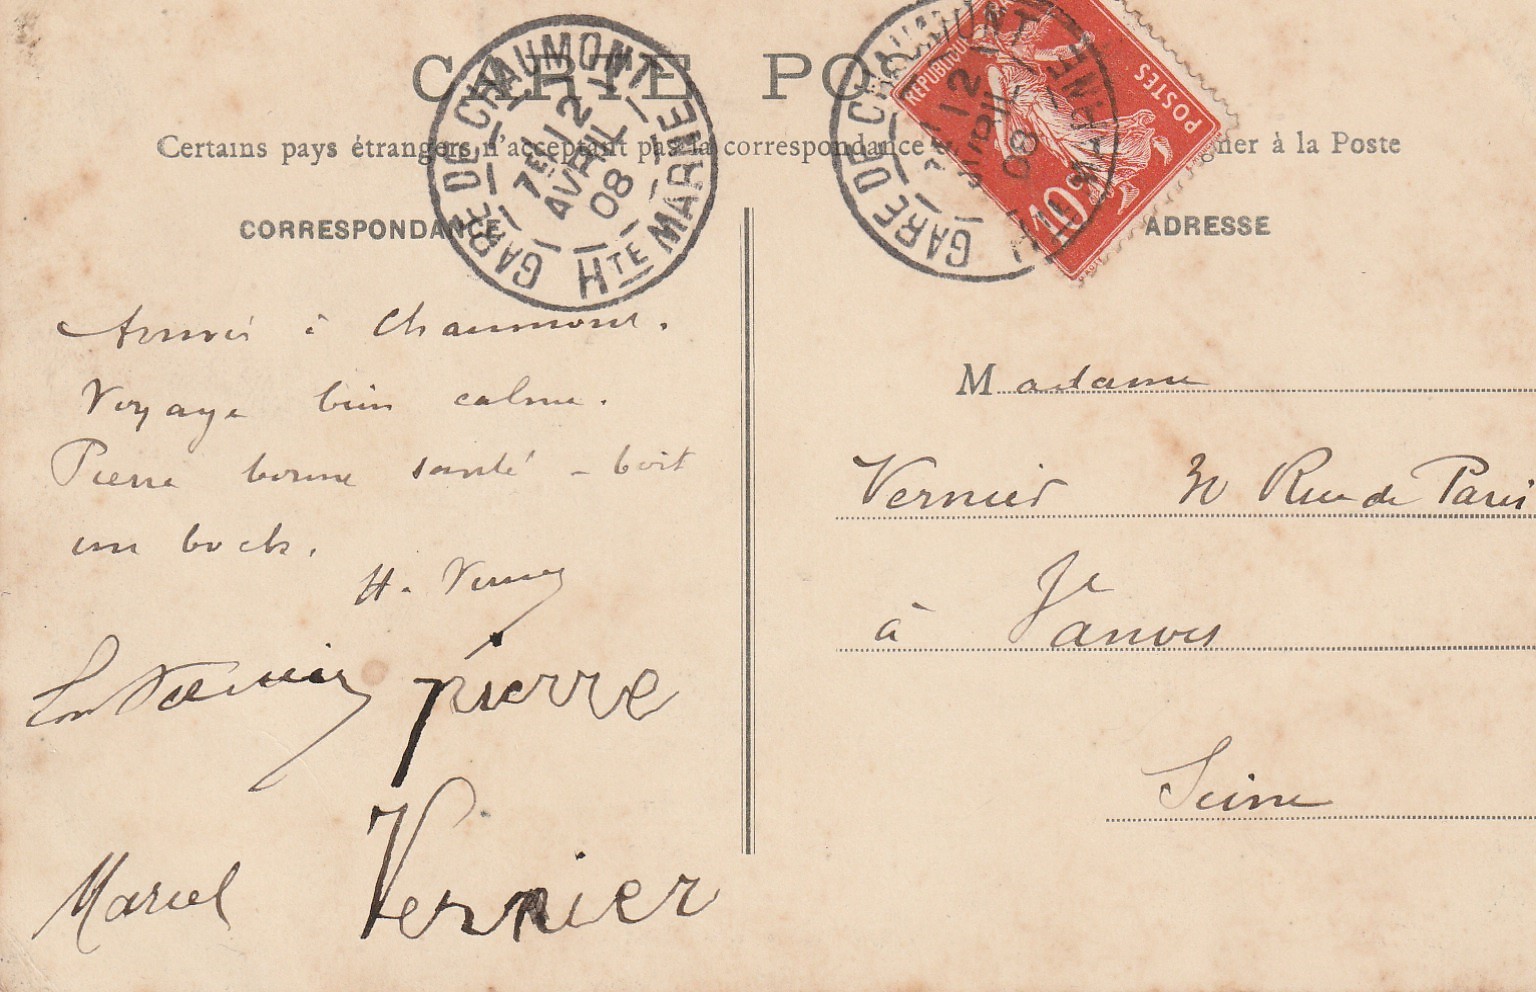 CARTE PO
Certains pays étrangers n'acceptent pas la correspondance gner à la Poste
CORRESPONDANCE
ADRESSE
GARE DE CHAUMONT
HTE MARNE
7E 12
AVRIL
08
GARE DE CHAUMONT
HTE MARNE
7E 12
AVRIL
08
REPUBLIQUE
POSTES
10c
Arrivés à Chaumont.
Voyage bien calme.
Pierre bonne santé - boit
un bock.
H. Vernier
Vernier
pierre
Vernier
Marcel
Madame
Vernier 30 Rue de Paris
à Vanves
Seine